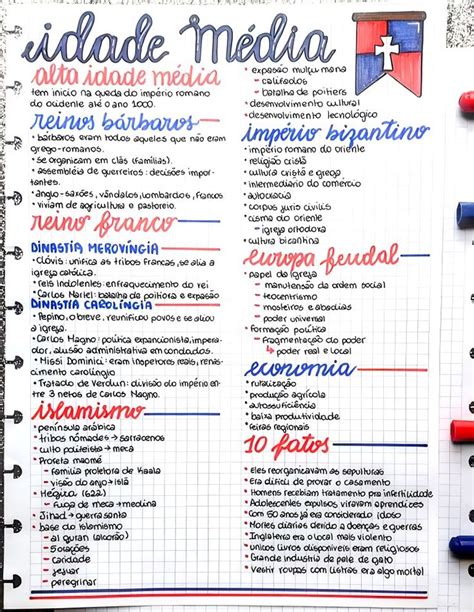 idade média
alta idade média
tem início na queda do império romano
do ocidente até o ano 1000.
reinos bárbaros
• bárbaros eram todos aqueles que não eram
greco-romanos.
• se organizam em clãs (famílias).
• assembléia de guerreiros: decisões impor-
tantes.
• anglo-saxões, vândalos, lombardos, francos
• viviam de agricultura e pastoreio.
reino franco
DINASTIA MEROVÍNGIA
• Clóvis: unifica as tribos francas, se alia a
igreja católica.
• reis indolentes: enfraquecimento do rei
• Carlos Martel: batalha de poitiers e expansão
DINASTIA CAROLÍNGIA
• Pepino, o breve, reunificou povos e se aliou
a igreja.
• Carlos Magno: política expancionista, impera-
dor, alusão administrativa em condados.
• Missi Dominici: eram inspetores reais, renas-
cimento carolíngio
• Tratado de Verdun: divisão do império entre
3 netos de Carlos Magno.
islamismo
• península arábica
• tribos nômades → sarracenos
• culto politeísta → meca
• Profeta maomé
– família protetora de
– visão do anjo
• Hégira (622)
– fuga de meca → medina
• Jihad → guerra santa
• base do islamismo
– al quran (alcorão)
– 5 orações
– caridade
– jejuar
– peregrinar
• expansão mulçumana
– califados
– batalha de poitiers
• desenvolvimento cultural
• desenvolvimento tecnológico
império bizantino
• império romano do oriente
• religião cristã
• cultura cristã e grega
• intermediário do comércio
• autocracia
• corpus juris civilis
• cisma do oriente
– igreja ortodoxa
• cultura bizantina
europa feudal
• papel da igreja
– manutensão da ordem social
– teocentrismo
– mosteiros e abadias
– poder universal
• formação política
– fragmentação do poder
↳ poder real e local
economia
• ruralização
• produção agrícola
• autossuficiência
• baixa produtividade
• feiras regionais
10 fatos
• eles reorganizavam as sepulturas
• Era difícil de provar o casamento
• Homens recebiam tratamento pra infertilidade
• Adolescentes expulsos viravam aprendices
• Com 60 anos já era considerado idoso
• Mortes diárias derido a doenças e guerras
• Inglaterra era o local mais violento
• unicos livros disponíveis eram religiosos
• Grande industria de pele de gato
• Vestir roupas com listras era algo mortal